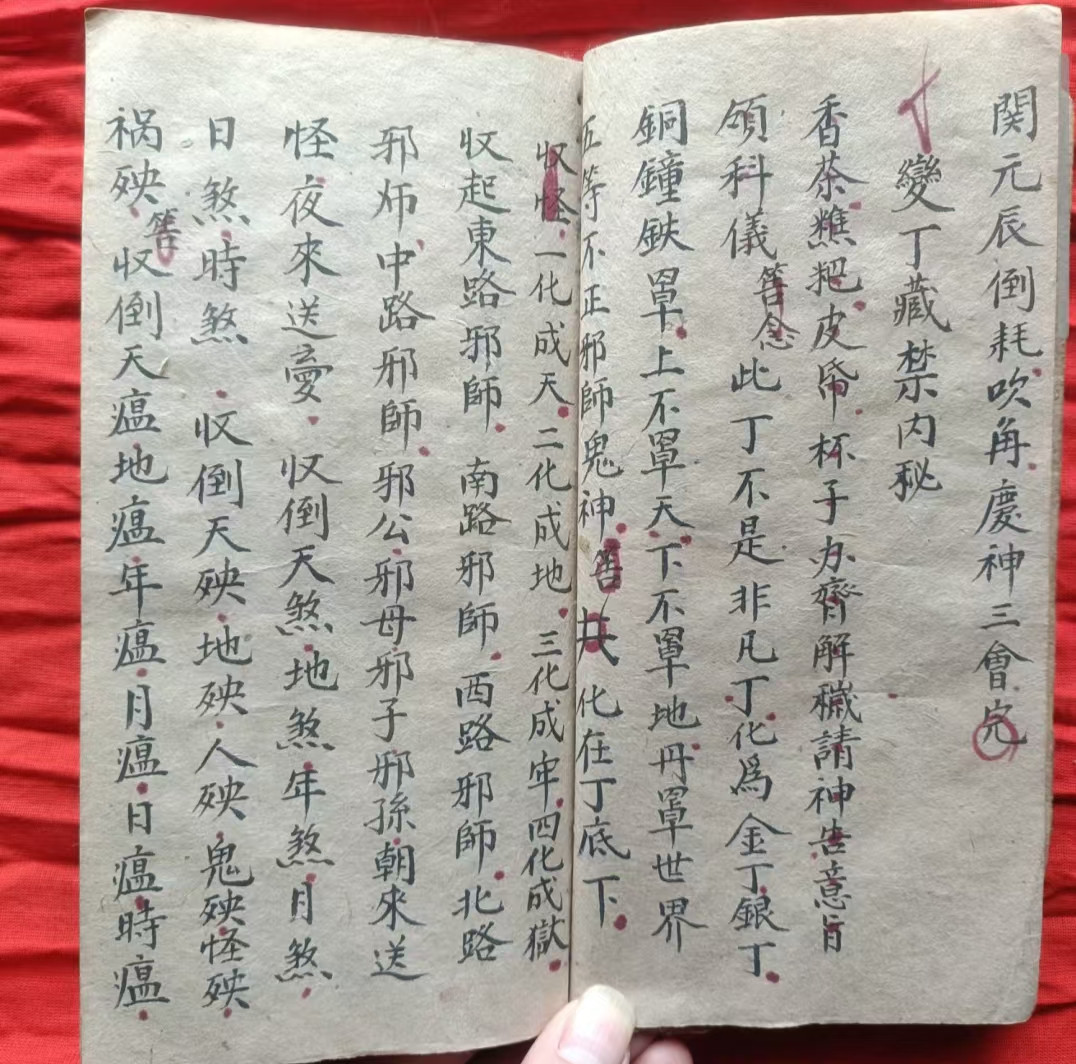 関元辰倒耗吹角慶神三會完
變丁藏禁内秘
香茶粆粑皮帋杯子办齊解穢請神告意旨
領科儀 筶念此丁不是非凡丁化爲金丁銀丁
銅鐘鉄罩上不罩天下不罩地丹罩世界
五等不正邪師鬼神筶共化在丁底下
収怪一化成天二化成地三化成牢四化成獄
収起東路邪師南路邪師西路邪師北路
邪师中路邪師邪公邪母邪子邪孫朝來送
怪夜來送憂収倒天煞地煞年煞月煞
日煞時煞収倒天殃地殃人殃鬼殃怪殃
祸殃筶収倒天瘟地瘟年瘟月瘟日瘟時瘟